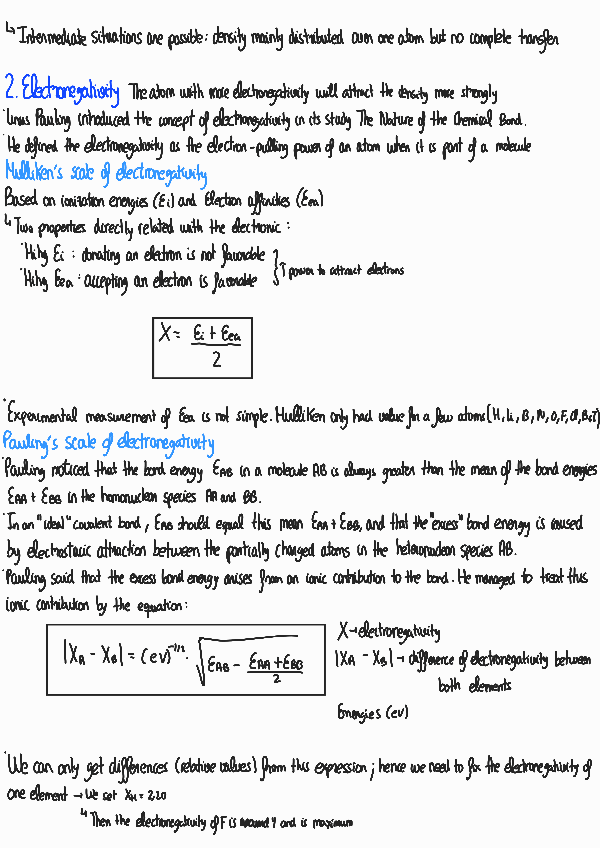 ↳ Intermediate situations are possible: density mainly distributed over one atom but no complete transfer
2. Electronegativity The atom with more electronegativity will attract the density more strongly
· Linus Pauling introduced the concept of electronegativity in its study The Nature of the Chemical Bond.
· He defined the electronegativity as the electron-pulling power of an atom when it is part of a molecule
Mulliken's scale of electronegativity
Based on ionization energies (Ei) and Electron affinities (Eea)
↳ Two properties directly related with the electronic:
· Hihg Ei : donating an electron is not favorable
· Hihg Eea : accepting an electron is favorable } ↑ power to attract electrons
X = (Ei + Eea) / 2
· Experimental measurement of Eea is not simple. Mulliken only had value for a few atoms (H, Li, B, N, O, F, Cl, Br, I)
Pauling's scale of electronegativity
· Pauling noticed that the bond energy EAB in a molecule AB is always greater than the mean of the bond energies
EAA + EBB in the homonuclear species AA and BB.
· In an "ideal" covalent bond, EAB should equal this mean EAA + EBB, and that the "excess" bond energy is caused
by electrostatic attraction between the partially charged atoms in the heteronuclear species AB.
· Pauling said that the excess bond energy arises from an ionic contribution to the bond. He managed to treat this
ionic contribution by the equation:
|XA - XB| = (eV)^-1/2 · √(EAB - (EAA + EBB)/2)
X → electronegativity
|XA - XB| → difference of electronegativity between
both elements
Energies (eV)
· We can only get differences (relative values) from this expression; hence we need to fix the electronegativity of
one element → We set XH = 2.20
↳ Then the electronegativity of F is around 4 and is maximum